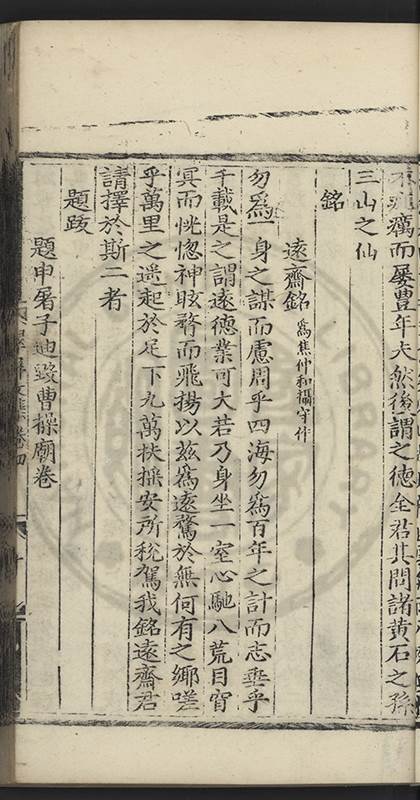 疵癘而屡豊年夫然後謂之德全若其問諸黄石之孫
三山之仙
銘
遠齋銘 為焦仲和攝守作
勿爲一身之謀而慮周乎四海勿爲百年之計而志垂乎
千載是之謂遠德業可大若乃身坐一室心馳八荒目窅
冥而恍惚神眩瞀而飛揚以兹爲遠騖於無何有之鄉嗟
乎萬里之遥起於足下九萬扶揺安所税駕我銘遠齋君
請擇於斯二者
題䟦
題申屠子迪毁曹操廟卷
文集卷四